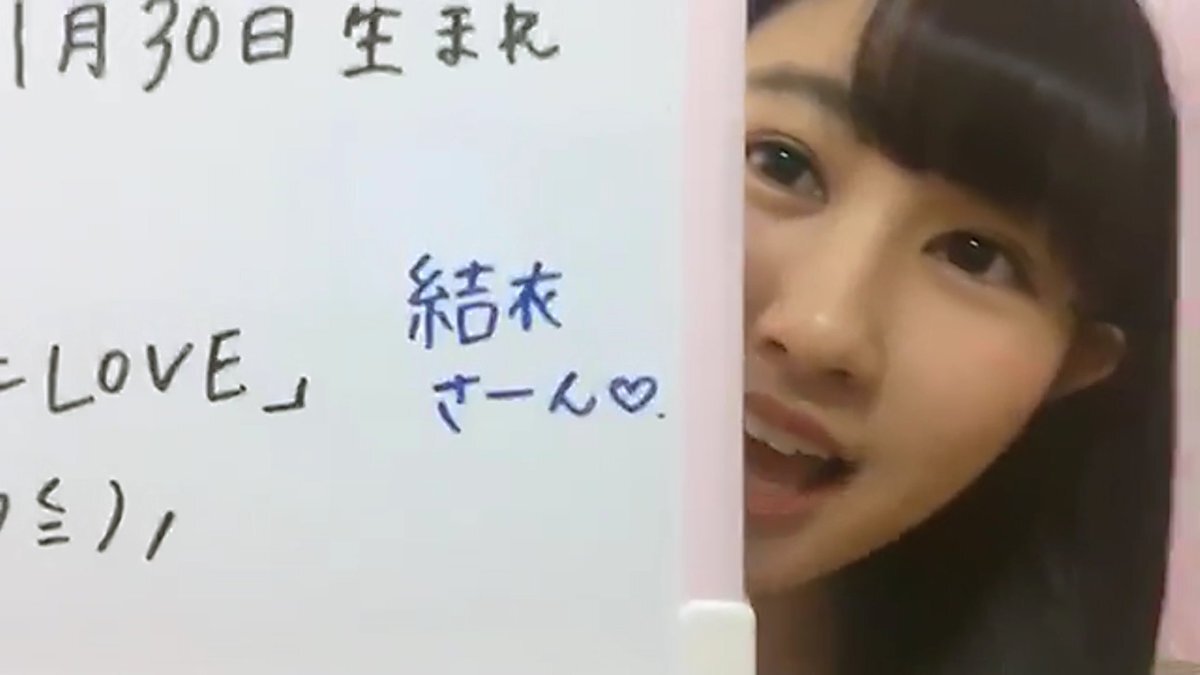 1月30日 生まれ
結衣
=LOVE」
さーん♡.
ミ)ノ